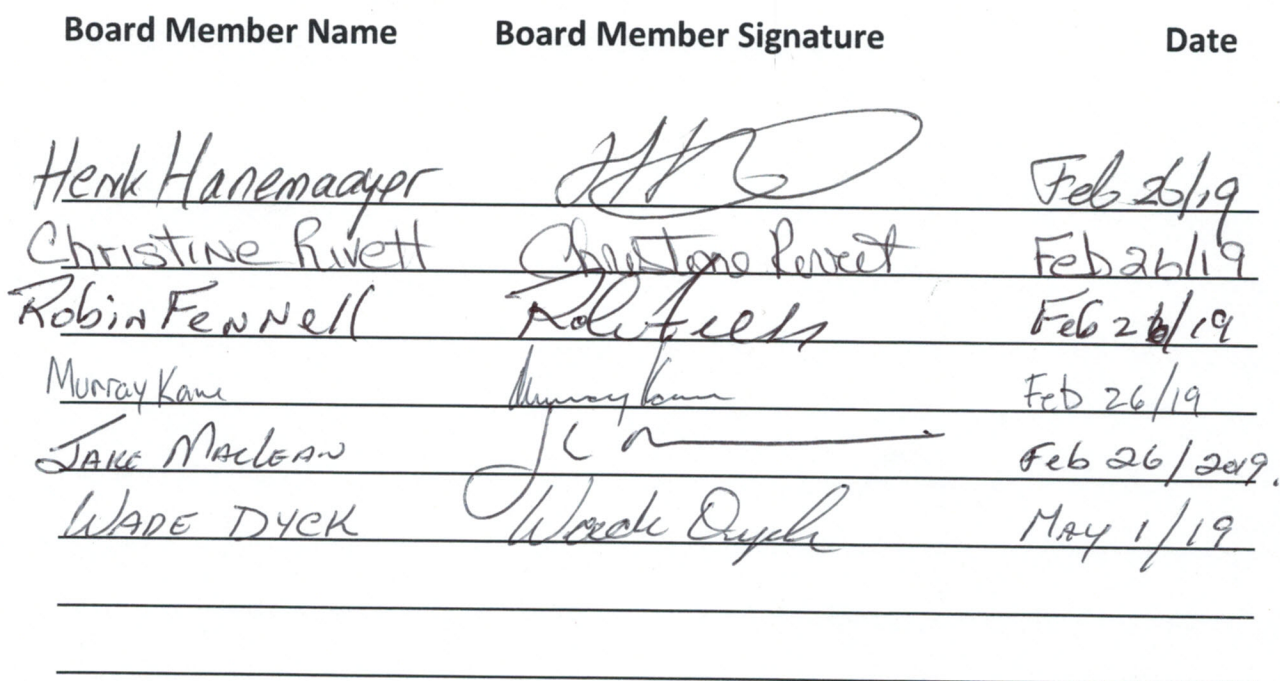 Board Member Name Board Member Signature Date
Henk Hanemaayer Feb 26/19
Christine Rivett Christine Rivett Feb 26/19
Robin Fennell Feb 26/19
Murray Kane Murray Kane Feb 26/19
Jake MacLean Feb 26/2019.
WADE DYCK Wade Dyck MAY 1/19